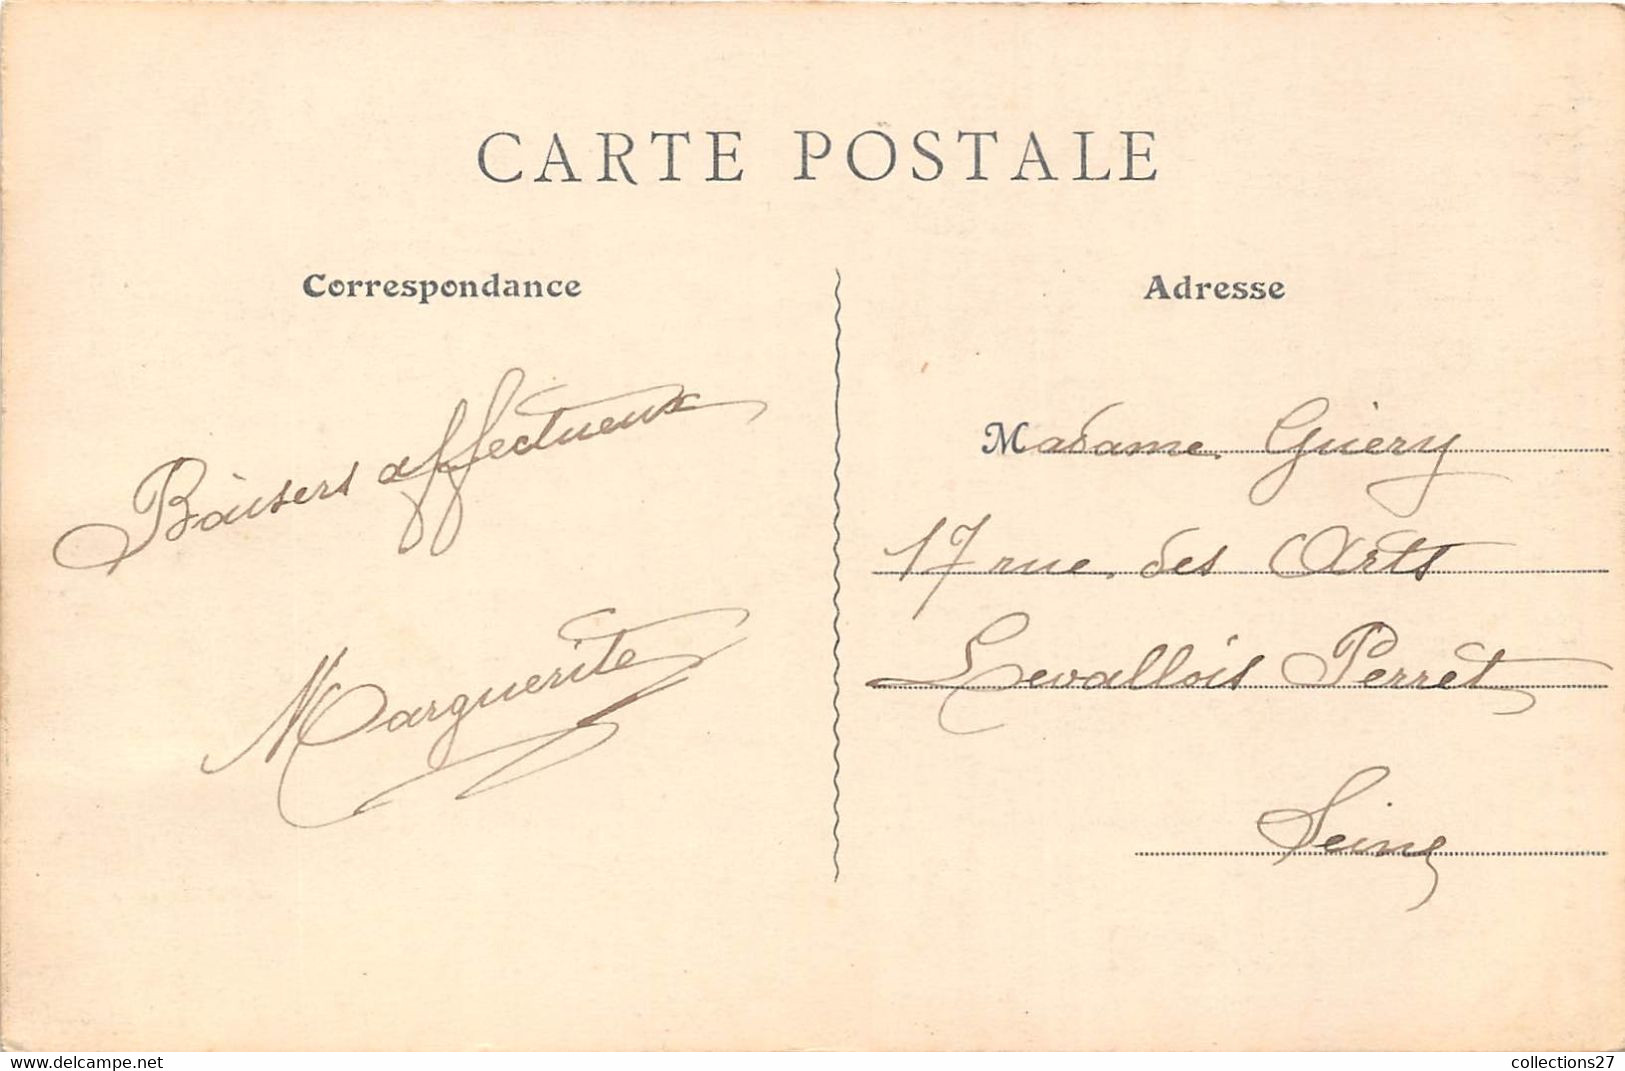 CARTE POSTALE
Correspondance
Baisers affectueux
Marguerite
Adresse
Madame Guiery
17 rue des Arts
Levallois Perret
Seine
www.delcampe.net
collections27